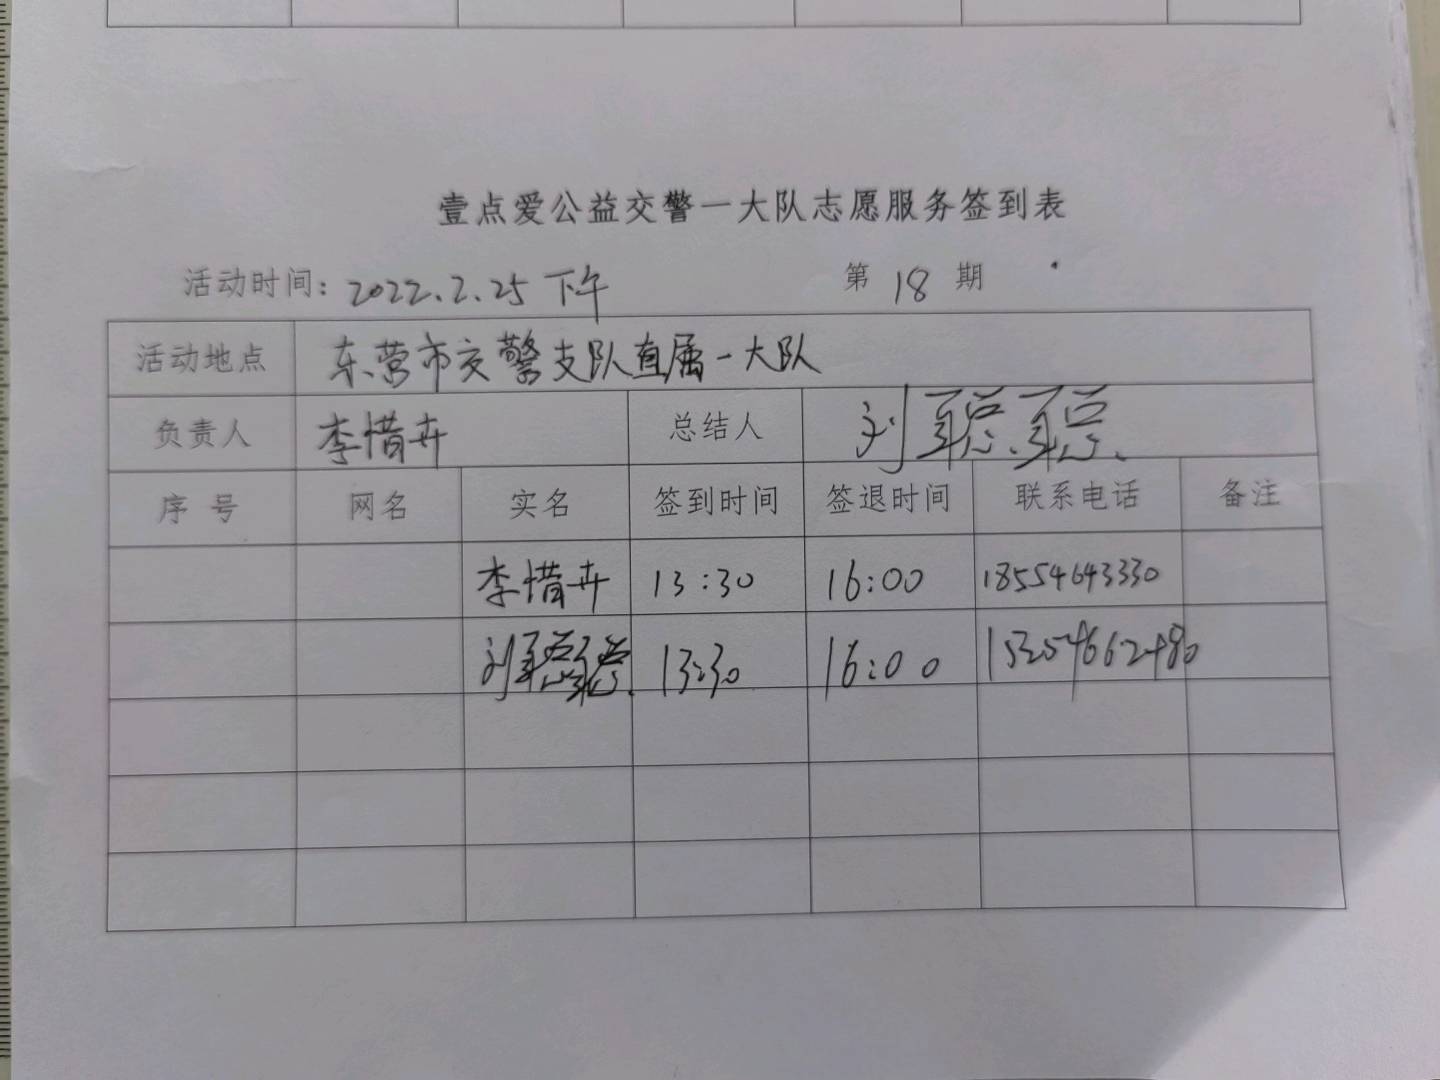 壹点爱公益交警一大队志愿服务签到表
活动时间：2022.2.25 下午 第 18 期
活动地点 东营市交警支队直属一大队
负责人 李惜卉 总结人 刘聪聪
序号 网名 实名 签到时间 签退时间 联系电话 备注
李惜卉 13:30 16:00 18554643330
刘聪聪 13:30 16:00 15254662480